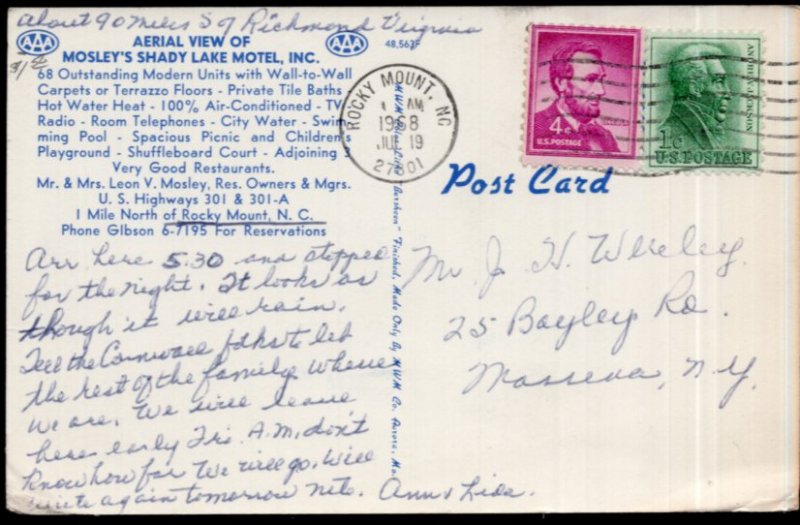 About 90 miles S of Richmond Virginia
AAA
AERIAL VIEW OF
MOSLEY'S SHADY LAKE MOTEL, INC.
AAA
48,563F
68 Outstanding Modern Units with Wall-to-Wall
Carpets or Terrazzo Floors - Private Tile Baths
Hot Water Heat - 100% Air-Conditioned - TV
Radio - Room Telephones - City Water - Swim-
ming Pool - Spacious Picnic and Children's
Playground - Shuffleboard Court - Adjoining 3
Very Good Restaurants.
Mr. & Mrs. Leon V. Mosley, Res. Owners & Mgrs.
U. S. Highways 301 & 301-A
1 Mile North of Rocky Mount, N. C.
Phone GIbson 6-7195 For Reservations
Arr here 5.30 and stopped
for the night. It looks as
though it will rain.
Tell the Cornwall folks to let
the rest of the family where
we are. We will leave
here early Fri. A.M, don't
know how far we will go. Will
write again tomorrow nite. Ann & Lida.
"Finished. Made Only By M.W.M. Co. Aurora, Mo.
ROCKY MOUNT, NC
AM
1968
JUL 19
27801
4¢
U.S. POSTAGE
ANDREW JACKSON
1¢
U.S. POSTAGE
Post Card
Mr J. H.
25 Bayley Rd.
Massena, N.Y.